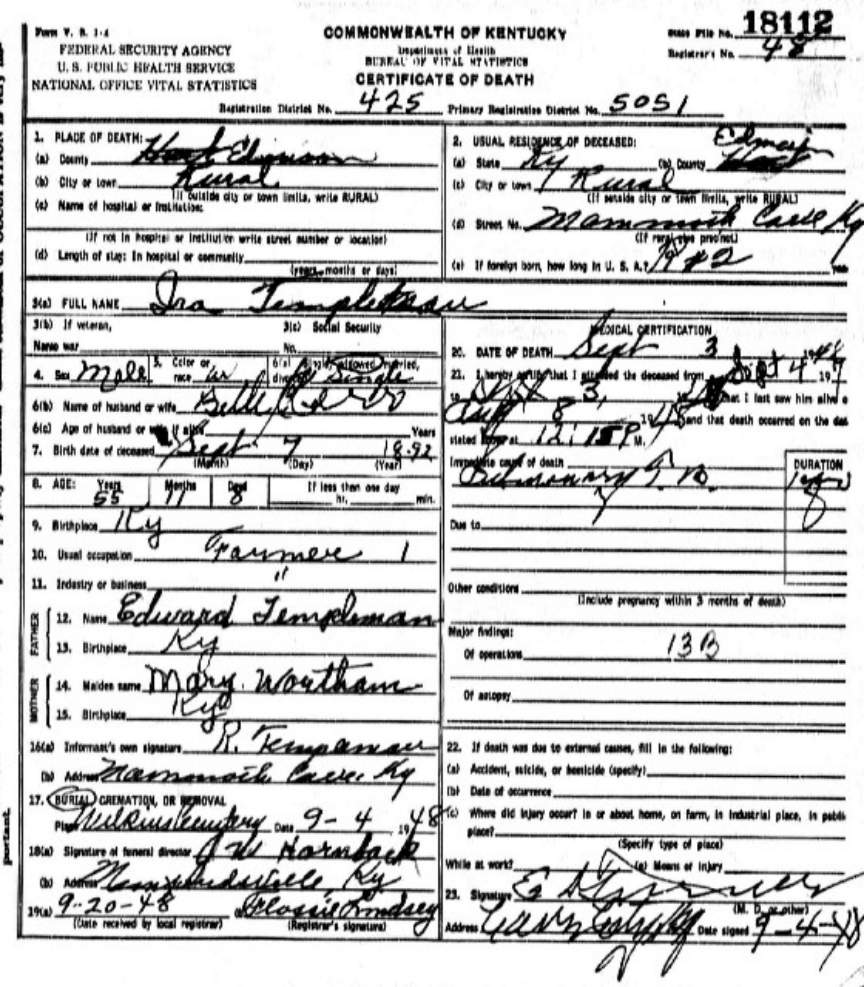 Form V. S. 1-A
FEDERAL SECURITY AGENCY
U. S. PUBLIC HEALTH SERVICE
NATIONAL OFFICE VITAL STATISTICS
COMMONWEALTH OF KENTUCKY
Department of Health
BUREAU OF VITAL STATISTICS
CERTIFICATE OF DEATH
State File No. 18112
Registrar's No. 48
Registration District No. 425 Primary Registration District No. 5051
1. PLACE OF DEATH:
(a) County Hart Edmonson
(b) City or town Rural
(If outside city or town limits, write RURAL)
(c) Name of hospital or institution:
(If not in hospital or institution write street number or location)
(d) Length of stay: In hospital or community
(years, months or days)
2. USUAL RESIDENCE OF DECEASED:
(a) State Ky (b) County Hart
(c) City or town Rural
(If outside city or town limits, write RURAL)
(d) Street No. Mammoth Cave Ky
(If rural give precinct)
(e) If foreign born, how long in U. S. A.? R #2 years
3(a) FULL NAME Ira Templeman
3(b) If veteran,
Name war
3(c) Social Security
No.
4. Sex Male 5. Color or race W 6(a) Single, widowed, married, Single
6(b) Name of husband or wife Belle
6(c) Age of husband or wife if alive Years
7. Birth date of deceased Sept 7 1892
(Month) (Day) (Year)
8. AGE: Years 55 Months 11 Days 8 If less than one day
hr. min.
9. Birthplace Ky
10. Usual occupation Farmer 1
11. Industry or business "
FATHER
12. Name Edward Templeman
13. Birthplace Ky
MOTHER
14. Maiden name Mary Wortham
15. Birthplace Ky
16(a) Informant's own signature R. Templeman
(b) Address Mammoth Cave Ky
17. BURIAL, CREMATION, OR REMOVAL
Place Wilkins Cemetery Date 9-4 1948
18(a) Signature of funeral director J W Hornback
(b) Address Munfordville, Ky
19(a) 9-20-48 (b) Flossie Lindsey
(Date received by local registrar) (Registrar's signature)
MEDICAL CERTIFICATION
20. DATE OF DEATH Sept 3 1948
21. I hereby certify that I attended the deceased from Sept 4 197
to Sept 3, 19 that I last saw him alive o
8 1948 and that death occurred on the dat
stated above at 12:15 P M.
Immediate cause of death DURATION
Pulmonary T. B.
Due to
Other conditions
(Include pregnancy within 3 months of death)
Major findings:
Of operations 13B
Of autopsy
22. If death was due to external causes, fill in the following:
(a) Accident, suicide, or homicide (specify)
(b) Date of occurrence
(c) Where did injury occur? In or about home, on farm, in industrial place, in public
place?
(Specify type of place)
While at work? (e) Means of injury
23. Signature
(M. D. or other)
Address Date signed 9-4-48
portant.